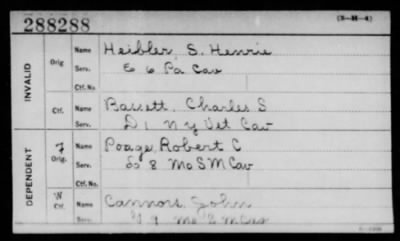 288288
(3-H-4)
INVALID
Orig
Name Heibler, S. Henrie
Serv. E 6 Pa Cav
Ctf. No.
Ctf.
Name Bassett, Charles S
Serv. D 1 N Y Vet Cav
DEPENDENT
Orig.
Name Poage, Robert C
Serv. 8 Mo S M Cav
Ctf. No.
W
Ctf.
Name Cannors, John
Serv.